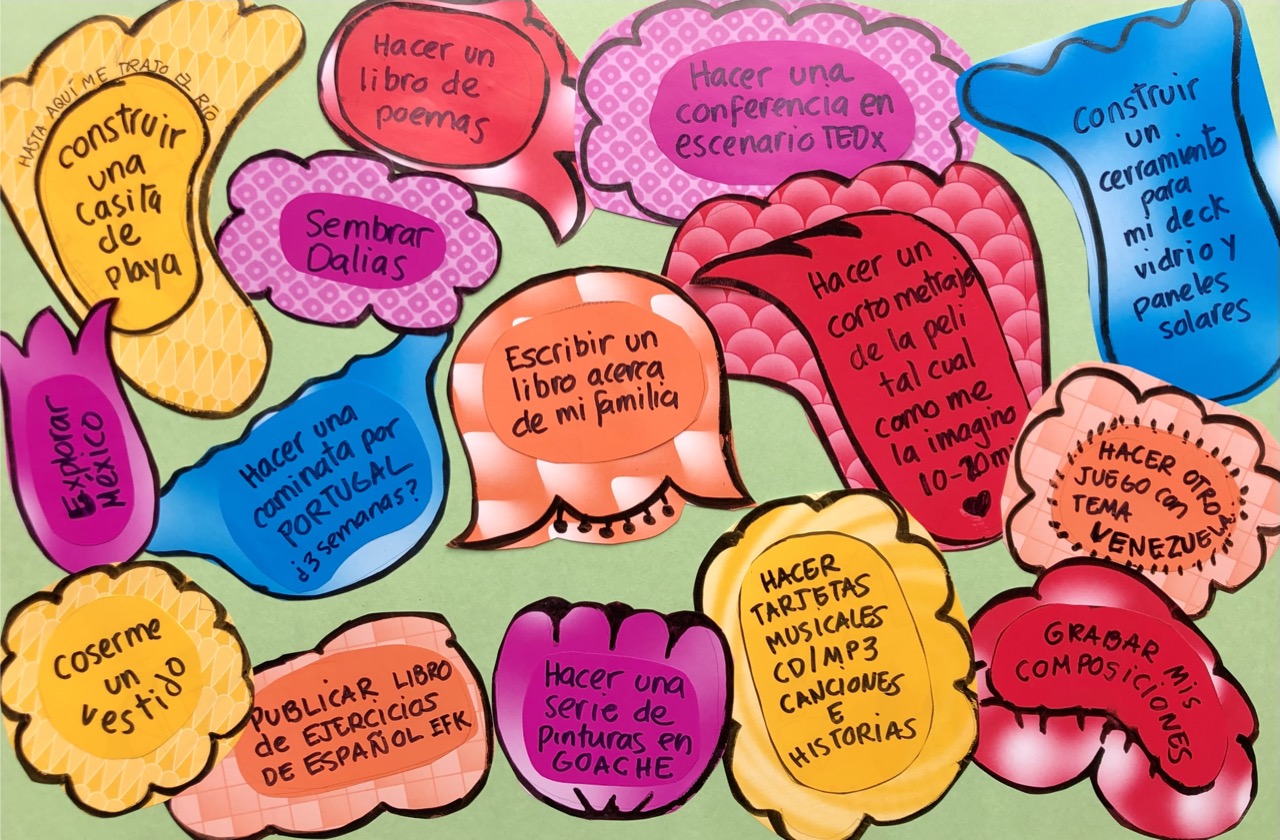 HASTA AQUÍ ME TRAJO EL RÍO
construir
una
casita
de
playa
Hacer un
libro de
poemas
Hacer una
conferencia en
escenario TEDx
Construir
un
cerramiento
para
mi deck
vidrio y
paneles
solares
Sembrar
Dalias
Hacer un
cortometraje
de la peli
tal cual
como me
la imagino
10-20mi
Escribir un
libro acerca
de mi familia
Explorar
México
Hacer una
caminata por
PORTUGAL
¿3 semanas?
HACER OTRO
JUEGO con
TEMA
VENEZUELA
coserme
un
vestido
PUBLICAR LIBRO
de EJERCICIOS
DE ESPAÑOL EFK
Hacer una
serie de
pinturas en
GOACHE
HACER
TARJETAS
MUSICALES
CD/MP3
CANCIONES
E
HISTORIAS
GRABAR MIS
COMPOSICIONES